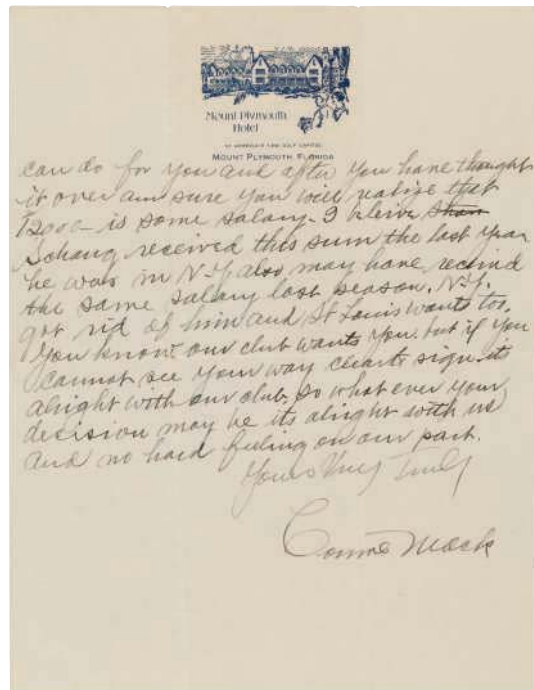 Mount Plymouth
Hotel
MOUNT PLYMOUTH, FLORIDA
can do for you and after you have thought
it over am sure you will realize that
12000- is some salary. I beleive
Schang received this sum the last year
he was in N.Y. also may have received
the same salary last season. N.Y.
got rid of him and St Louis wants too.
You know our club wants you. but if you
cannot see your way clear to sign its
alright with our club. So what ever your
decision may be its alright with us
and no hard feeling on our part.
Yours Very Truly
Connie Mack